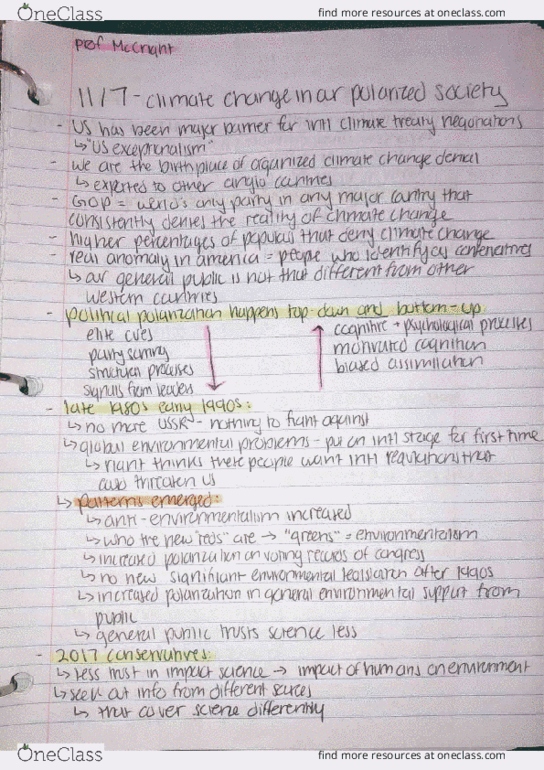 OneClass find more resources at oneclass.com
Prof McCright
11/7 - climate change in our polarized society
- US has been major barrier for intl climate treaty negotiations
↳ "US exceptionalism"
- we are the birthplace of organized climate change denial
↳ exported to other anglo countries
- GOP = world's only party in any major country that
consistently denies the reality of climate change
- higher percentages of populous that deny climate change
- real anomaly in america = people who identify as conservatives
↳ our general public is not that different from other
western countries
- political polarization happens top-down and bottom-up
elite cues cognitive + psychological processes
party sorting motivated cognition
structural processes biased assimilation
signals from leaders
- late 1980s early 1990s:
↳ no more USSR - nothing to fight against
↳ global environmental problems - put on intl stage for first time
↳ right thinks these people want intl regulations that
could threaten us
↳ patterns emerged:
↳ anti-environmentalism increased
↳ who the new "reds" are → "greens" = environmentalism
↳ increased polarization on voting records of congress
↳ no new significant environmental legislation after 1990s
↳ increased polarization in general environmental support from
public
↳ general public trusts science less
- 2017 conservatives:
↳ less trust in impact science → impact of humans on environment
↳ seek out info from different sources
↳ that cover science differently
OneClass find more resources at oneclass.com